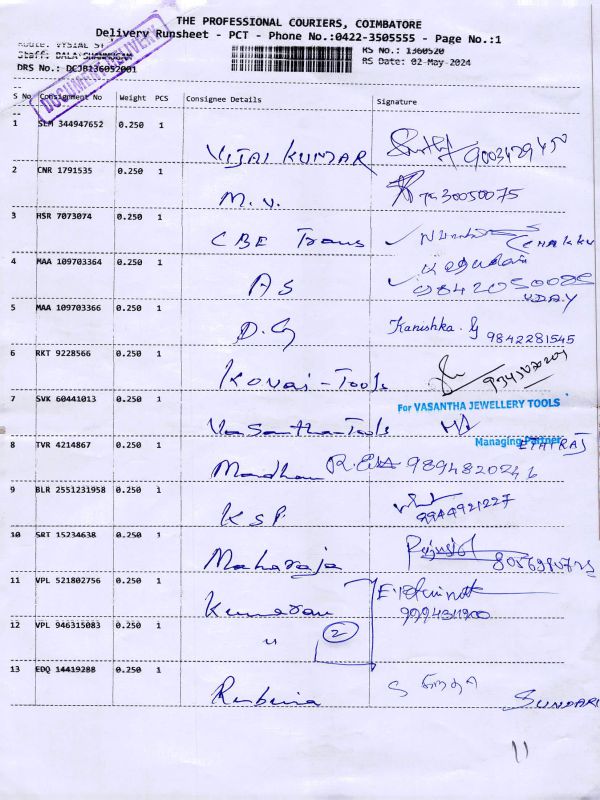 THE PROFESSIONAL COURIERS, COIMBATORE
Delivery Runsheet - PCT - Phone No.:0422-3505555 - Page No.:1
Route: VYSIAL ST
Staff: BALA SHANMUGAM RS No.: 1360520
DRS No.: DCJB136052001 RS Date: 02-May-2024
DOCUMENT DELIVERY
S No Consignment No Weight PCS Consignee Details Signature
1 SLM 344947652 0.250 1 VIJAI KUMAR
2 CNR 1791535 0.250 1 M.V.
3 HSR 7073074 0.250 1 CBE Trans
4 MAA 109703364 0.250 1 AS UDAY
5 MAA 109703366 0.250 1 D.G Kanishka.G 9842281545
6 RKT 9228566 0.250 1 Kovai-Tools
For VASANTHA JEWELLERY TOOLS
7 SVK 60441013 0.250 1 Vasantha-Tools
Managing Partner
8 TVR 4214867 0.250 1 Madhan 9894820246
9 BLR 2551231958 0.250 1 KSP 9944921227
10 SRT 15234638 0.250 1 Maharaja
11 VPL 521802756 0.250 1 Kumaran
12 VPL 946315083 0.250 1 " 2
13 EDQ 14419288 0.250 1 SUNDARI
11